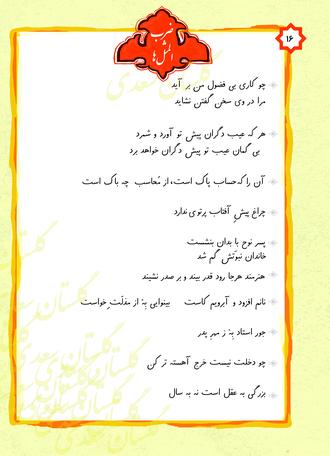 ۱۶
ضرب
المثل‌ها
چو کاری بی فضول من بر آید
مرا در وی سخن گفتن نشاید
هر که عیب دگران پیش تو آورد و شمرد
بی گمان عیب تو پیش دگران خواهد برد
آن را که حساب پاک است، از مُحاسب چه باک است
چراغ پیشِ آفتاب پرتوی ندارد
پسر نوح با بدان بنشست
خاندان نبوّتش گم شد
هنرمند هرجا رود قدر بیند و بر صدر نشیند
نانم افزود و آبرویم کاست بینوایی بهْ از مذلّتِ خواست
جورِ استاد بهْ ز مهر پدر
چو دخلت نیست خرج آهسته تر کن
بزرگی به عقل است نه به سال
گلستان سعدی
گلستان سعدی
گلستان سعدی